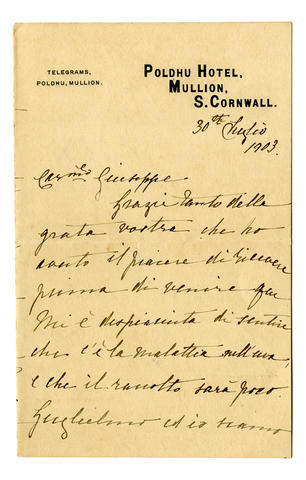 TELEGRAMS,
POLDHU, MULLION.
POLDHU HOTEL,
MULLION,
S. CORNWALL.
30th Luglio
1903.
Carmo Giuseppe
Grazie tanto della
grata vostra che ho
avuto il piacere di ricevere
prima di venire qui
Mi è dispiaciuta di sentire
che c'è la malattia nell'uva,
e che il racolto sarà poco.
Guglielmo ed io siamo